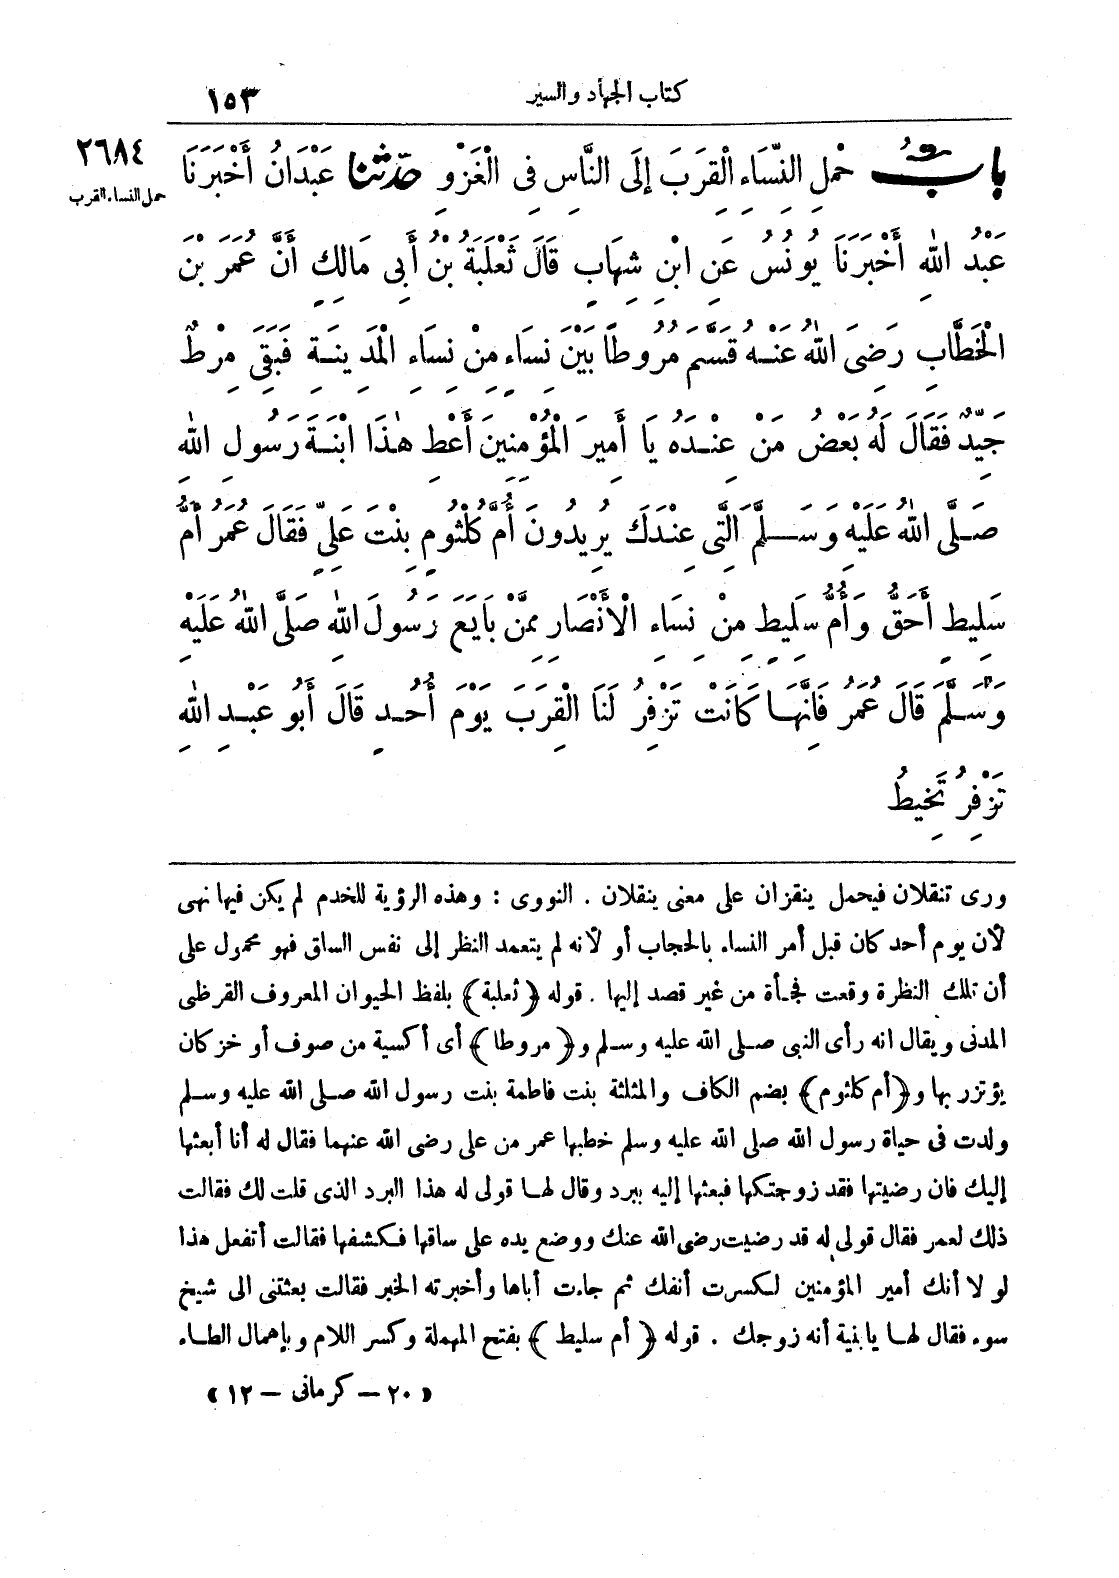 كتاب الجهاد والسير
١٥٣
٢٦٨٤
حمل النساء القرب
بابُ حَمْلِ النِّسَاءِ الْقِرَبَ إِلَى النَّاسِ فِى الْغَزْوِ حدثنا عَبْدَانُ أَخْبَرَنَا
عَبْدُ اللهِ أَخْبَرَنَا يُونُسُ عَنِ ابْنِ شِهَابٍ قَالَ ثَعْلَبَةُ بْنُ أَبِى مَالِكٍ أَنَّ عُمَرَ بْنَ
الْخَطَّابِ رَضِىَ اللهُ عَنْهُ قَسَّمَ مُرُوطًا بَيْنَ نِسَاءٍ مِنْ نِسَاءِ الْمَدِينَةِ فَبَقِىَ مِرْطٌ
جَيِّدٌ فَقَالَ لَهُ بَعْضُ مَنْ عِنْدَهُ يَا أَمِيرَ الْمُؤْمِنِينَ أَعْطِ هٰذَا ابْنَةَ رَسُولِ اللهِ
صَلَّى اللهُ عَلَيْهِ وَسَلَّمَ الَّتِى عِنْدَكَ يُرِيدُونَ أُمَّ كُلْثُومٍ بِنْتَ عَلِىٍّ فَقَالَ عُمَرُ أُمُّ
سَلِيطٍ أَحَقُّ وَأُمُّ سَلِيطٍ مِنْ نِسَاءِ الْأَنْصَارِ مِمَّنْ بَايَعَ رَسُولَ اللهِ صَلَّى اللهُ عَلَيْهِ
وَسَلَّمَ قَالَ عُمَرُ فَإِنَّهَا كَانَتْ تَزْفِرُ لَنَا الْقِرَبَ يَوْمَ أُحُدٍ قَالَ أَبُو عَبْدِ اللهِ
تَزْفِرُ تَخِيطُ
وروى تنقلان فيحمل ينقزان على معنى ينقلان . النووى : وهذه الرؤية للخدم لم يكن فيها نهى
لأن يوم أحد كان قبل أمر النساء بالحجاب أو لأنه لم يتعمد النظر إلى نفس الساق فهو محمول على
أن تلك النظرة وقعت فجأة من غير قصد إليها . قوله ﴿ ثعلبة ﴾ بلفظ الحيوان المعروف القرظى
المدنى ويقال انه رأى النبى صلى الله عليه وسلم و﴿ مروطا ﴾ أى أكسية من صوف أو خز كان
يؤتزر بها و﴿أم كلثوم﴾ بضم الكاف والمثلثة بنت فاطمة بنت رسول الله صلى الله عليه وسلم
ولدت فى حياة رسول الله صلى الله عليه وسلم خطبها عمر من على رضى الله عنهما فقال له أنا أبعثها
إليك فان رضيتها فقد زوجتكها فبعثها إليه ببرد وقال لها قولى له هذا البرد الذى قلت لك فقالت
ذلك لعمر فقال قولى له قد رضيت رضى الله عنك ووضع يده على ساقها فكشفها فقالت أتفعل هذا
لو لا أنك أمير المؤمنين لكسرت أنفك ثم جاءت أباها وأخبرته الخبر فقالت بعثتنى الى شيخ
سوء فقال لها يابنية أنه زوجك . قوله ﴿ أم سليط ﴾ بفتح المهملة وكسر اللام وباهمال الطاء
« ٢٠ – كرمانى – ١٢ »